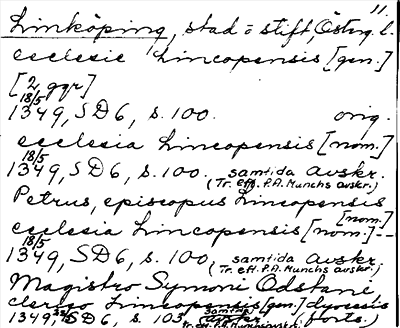 11.
Linköping, stad o stift, Östrg. l.
ecclesie Lincopensis [gen.]
[2 ggr]
18/5
1349, SD6, s. 100. orig.
ecclesia Lincopensis [nom.]
18/5
1349, SD6, s. 100. samtida avskr.
(Tr. eft. P.A. Munchs avskr.)
Petrus, episcopus Lincopensis
[nom.]
ecclesia Lincopensis [nom.] - -
18/5
1349, SD6, s. 100. samtida avskr.
(Tr. eft. P.A. Munchs avskr.)
Magistro Symoni Odstani
clerico Lincopensis [gen.] dyocesis
1349, SD6, s. 103. samtida avskr. (forts.)
Tr. eft. P.A. Munchs avskr.